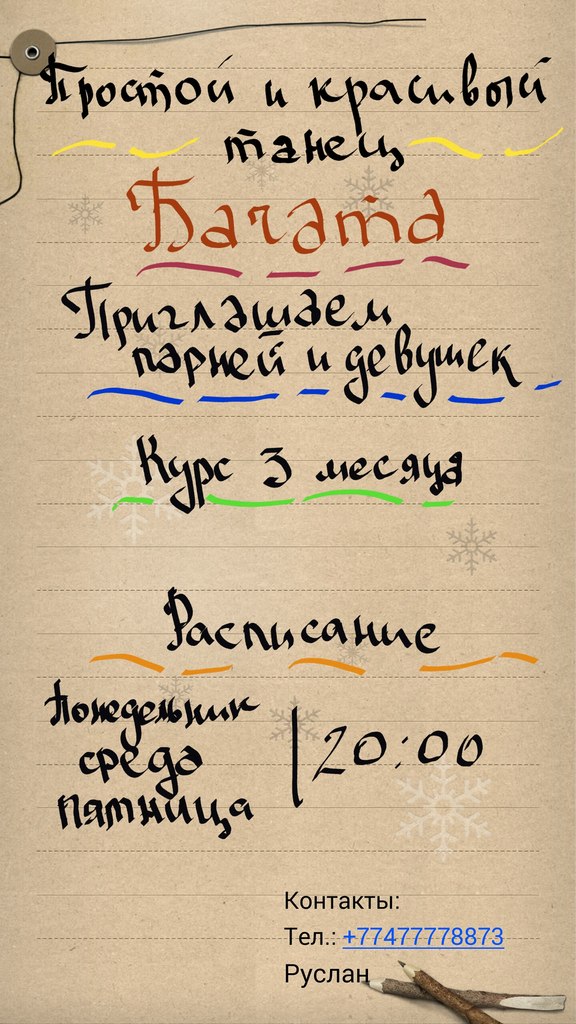 Простой и красивый
танец
Бачата
Приглашаем
парней и девушек
Курс 3 месяца
Расписание
Понедельник
среда
пятница
20:00
Контакты:
Тел.: +77477778873
Руслан